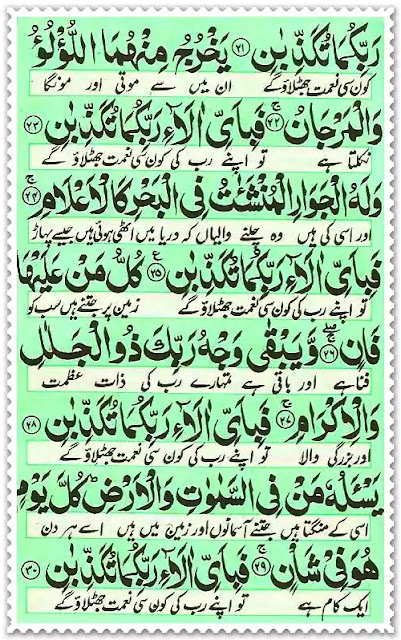 رَبِّكُمَا تُكَذِّبٰنِ ﴿۲۱﴾ يَخْرُجُ مِنْهُمَا اللُّؤْلُؤُ
کون سی نعمت جھٹلاؤ گے ان میں سے موتی اور مونگا
وَالْمَرْجَانُ ﴿۲۲﴾ۚ فَبِاَىِّ اٰلَآءِ رَبِّكُمَا تُكَذِّبٰنِ ﴿۲۳﴾
نکلتا ہے تو اپنے رب کی کون سی نعمت جھٹلاؤ گے
وَلَهُ الْجَوَارِ الْمُنْشَئٰتُ فِى الْبَحْرِ كَالْاَعْلَامِ ﴿۲۴﴾ۚ
اور اسی کی ہیں وہ چلنے والیاں کہ دریا میں اٹھی ہوئی ہیں جیسے پہاڑ
فَبِاَىِّ اٰلَآءِ رَبِّكُمَا تُكَذِّبٰنِ ﴿۲۵﴾ۧ كُلُّ مَنْ عَلَيْهَا
تو اپنے رب کی کون سی نعمت جھٹلاؤ گے زمین پر جتنے ہیں سب کو
فَانٍ ﴿۲۶﴾ۚۖ وَّيَبْقٰى وَجْهُ رَبِّكَ ذُو الْجَلٰلِ
فنا ہے اور باقی ہے تمہارے رب کی ذات عظمت
وَالْاِكْرَامِ ﴿۲۷﴾ۚ فَبِاَىِّ اٰلَآءِ رَبِّكُمَا تُكَذِّبٰنِ ﴿۲۸﴾
اور بزرگی والا تو اپنے رب کی کون سی نعمت جھٹلاؤ گے
يَسْئَلُهٗ مَنْ فِى السَّمٰوٰتِ وَالْاَرْضِ ؕ كُلَّ يَوْمٍ
اسی کے منگتا ہیں جتنے آسمانوں اور زمین میں ہیں اسے ہر دن
هُوَ فِىْ شَاْنٍ ﴿۲۹﴾ۚ فَبِاَىِّ اٰلَآءِ رَبِّكُمَا تُكَذِّبٰنِ ﴿۳۰﴾
ایک کام ہے تو اپنے رب کی کون سی نعمت جھٹلاؤ گے